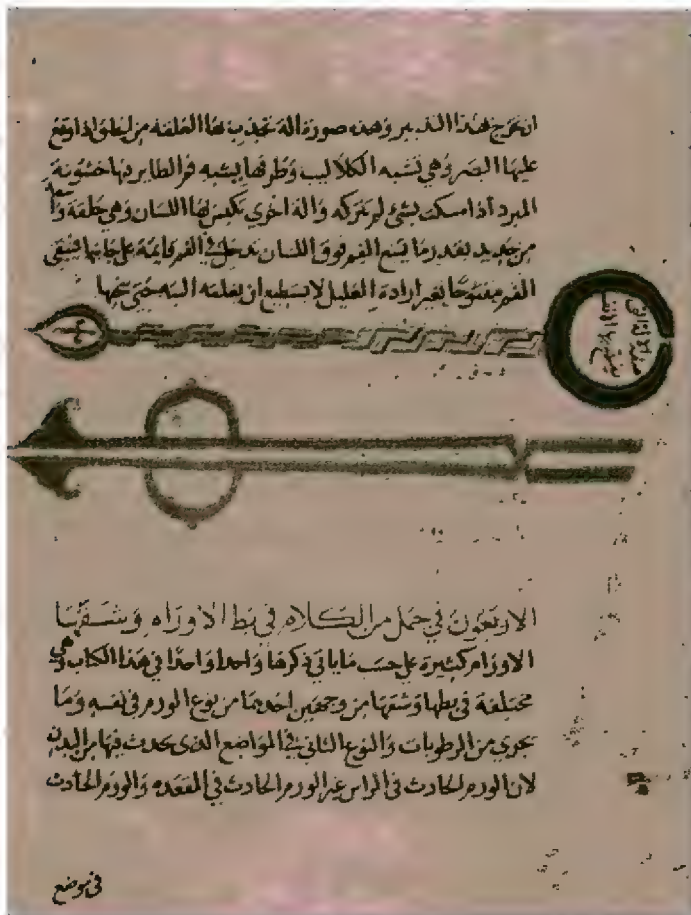 ان تخرج بهذا التدبير وهذه صورة الة تجذب بها العلقة من الحلق اذا وقع
عليها البصر وهي تشبه الكلاليب وطرفها يشبه فم الطاير فيها خشونة
المبرد اذا امسكت بشئ لم تتركه والة اخري تكبس بها اللسان وهي حلقة
من حديد بقدر ما يسع الفم فوق اللسان تدخل في الفم قايمة علي جانبها فيبقي
الفم مفتوحا بغير ارادة العليل لا يستطيع ان يغلقه البته حتي ينحيها
الاربعون في جمل من الكلام في بط الاورام وشقها
الاورام كثيرة علي حسب ما ياتي ذكرها واحدا واحدا في هذا الكتاب وهي
مختلفة في بطها وشقها من وجهين احدهما من نوع الورم في نفسه وما
يحوي من الرطوبات والنوع الثاني في المواضع الذي يحدث فيها من البدن
لان الورم الحادث في الراس غير الورم الحادث في المقعده والورم الحادث
في موضع